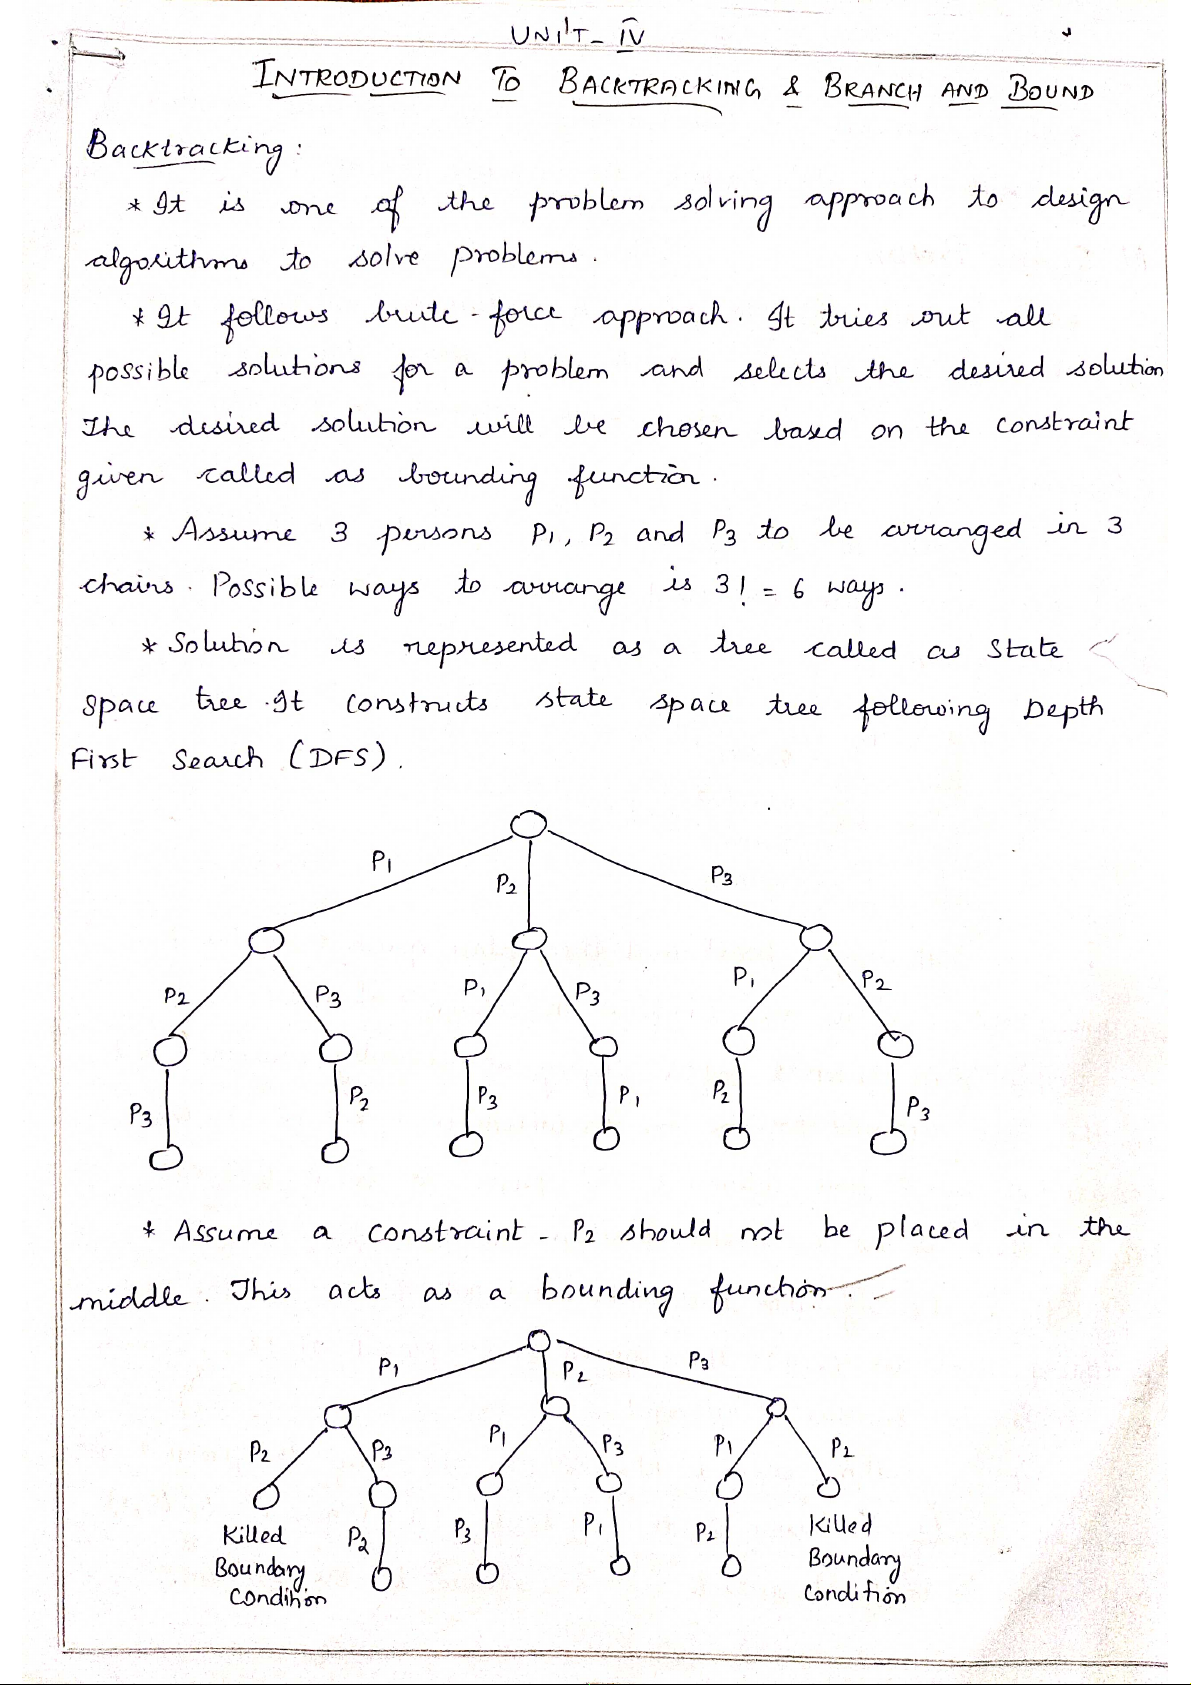 UNIT - IV
INTRODUCTION TO BACKTRACKING & BRANCH AND BOUND
Backtracking :
* It is one of the problem solving approach to design
algorithms to solve problems .
* It follows brute - force approach . It tries out all
possible solutions for a problem and selects the desired solution
The desired solution will be chosen based on the constraint
given called as bounding function .
* Assume 3 persons P1 , P2 and P3 to be arranged in 3
chairs . Possible ways to arrange is 3! = 6 ways .
* Solution is represented as a tree called as State
Space tree . It constructs state space tree following Depth
First Search (DFS) .
P1 P2 P3
P2 P3 P1 P3 P1 P2
P3 P2 P3 P1 P2 P3
* Assume a constraint - P2 should not be placed in the
middle . This acts as a bounding function .
P1 P2 P3
P2 P3 P1 P3 P1 P2
Killed P2 P3 P1 P2 Killed
Boundary Boundary
Condition Condition